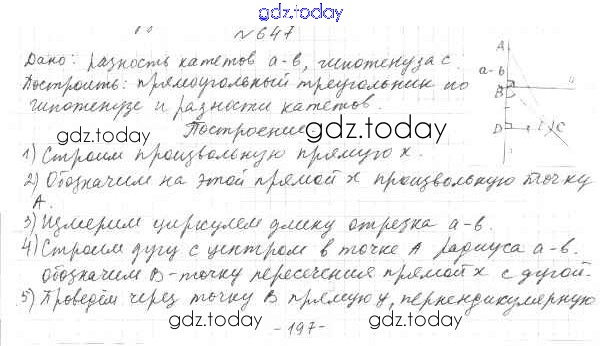 gdz.today
№647
Дано: разность катетов а-в, гипотенуза с.
Построить: прямоугольный треугольник по
гипотенузе и разности катетов.
A
а-в
В
D
C
Построение
gdz.today
gdz.today
1) Строим произвольную прямую х.
2) Обозначим на этой прямой х произвольную точку
А.
3) Измерим циркулем длину отрезка а-в.
4) Строим дугу с центром в точке А радиуса а-в.
обозначим В-точку пересечения прямой х с дугой.
5) Проведём через точку В прямую у, перпендикулярную
gdz.today
-197-
gdz.today